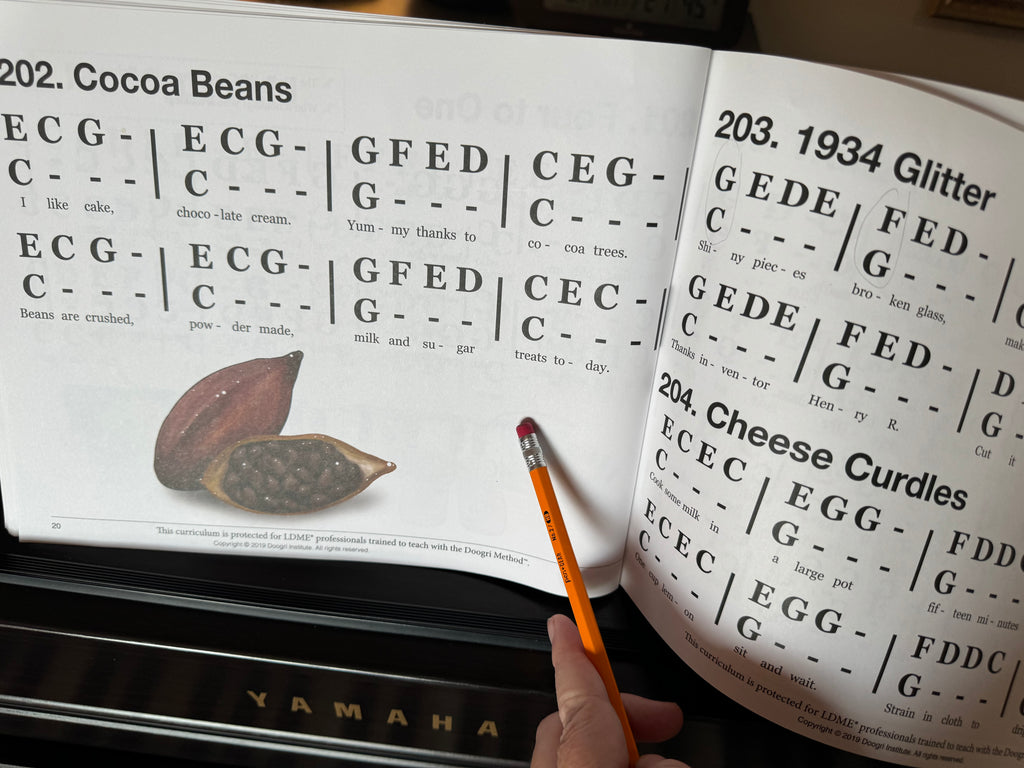 202. Cocoa Beans
E C G - | E C G - | G F E D | C E G - |
C - - - | C - - - | G - - - | C - - - |
I like cake, choco - late cream. Yum - my thanks to co - coa trees.
E C G - | E C G - | G F E D | C E C - |
C - - - | C - - - | G - - - | C - - - |
Beans are crushed, pow - der made, milk and su - gar treats to - day.
20
This curriculum is protected for LDME® professionals trained to teach with the Doogri Method™.
Copyright © 2019 Doogri Institute. All rights reserved.
203. 1934 Glitter
G E D E | F E D - |
C - - - | G - - - |
Shi - ny piec - es bro - ken glass,
G E D E | F E D - | D
C - - - | G - - - | G -
Thanks in - ven - tor Hen - ry R. Cut it
204. Cheese Curdles
E C E C | E G G - | F D D
C - - - | G - - - | G - - -
Cook some milk in a large pot fif - teen mi - nutes
E C E C | E G G - | F D D C
C - - - | G - - - | G - - -
One cup lem - on sit and wait. Strain in cloth to
This curriculum is protected for LDME® professionals trained to teach with the Doogri
Copyright © 2019 Doogri Institute. All rights reserved.
YAMAHA